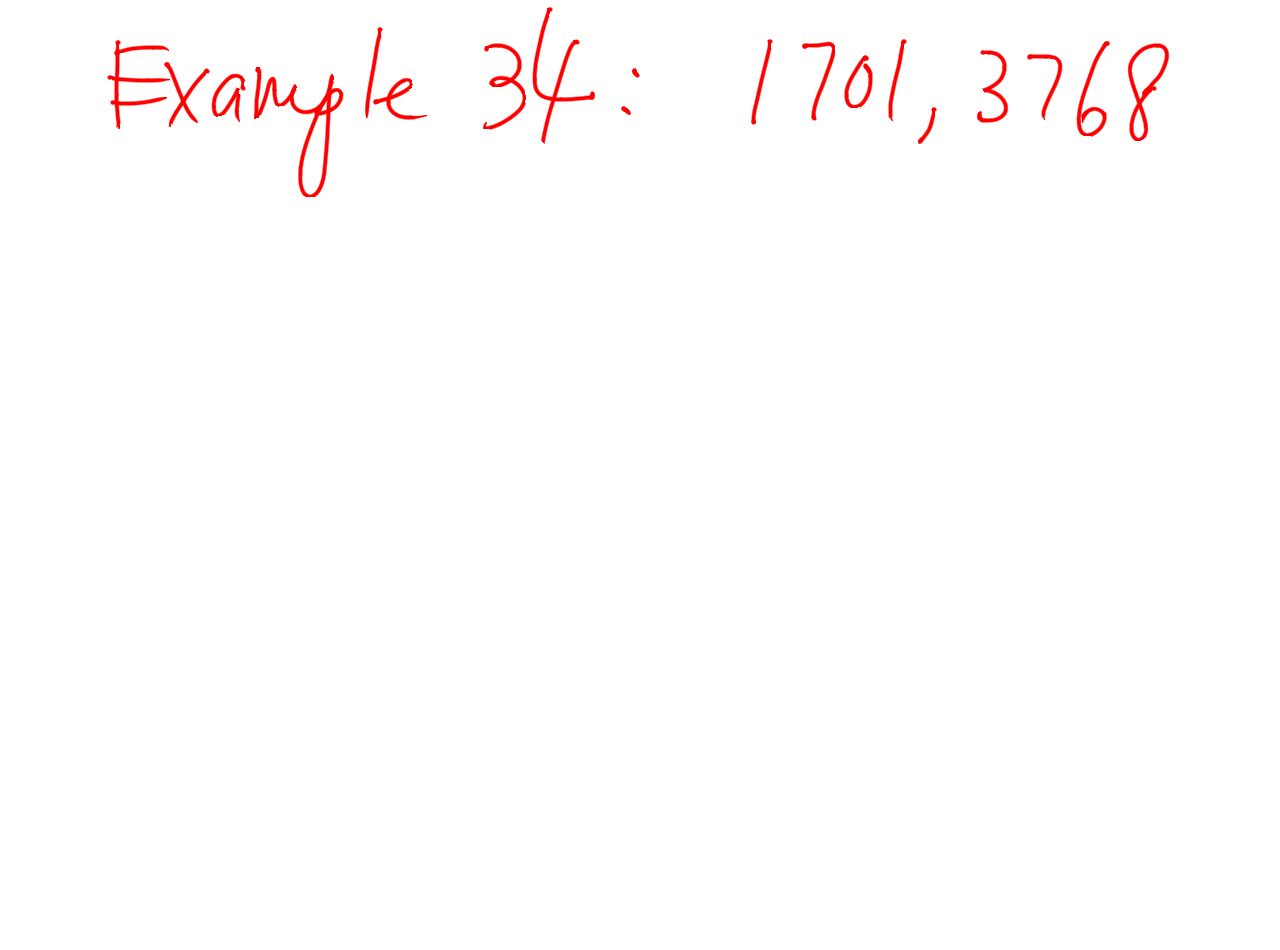 Example 34: 1701, 3768